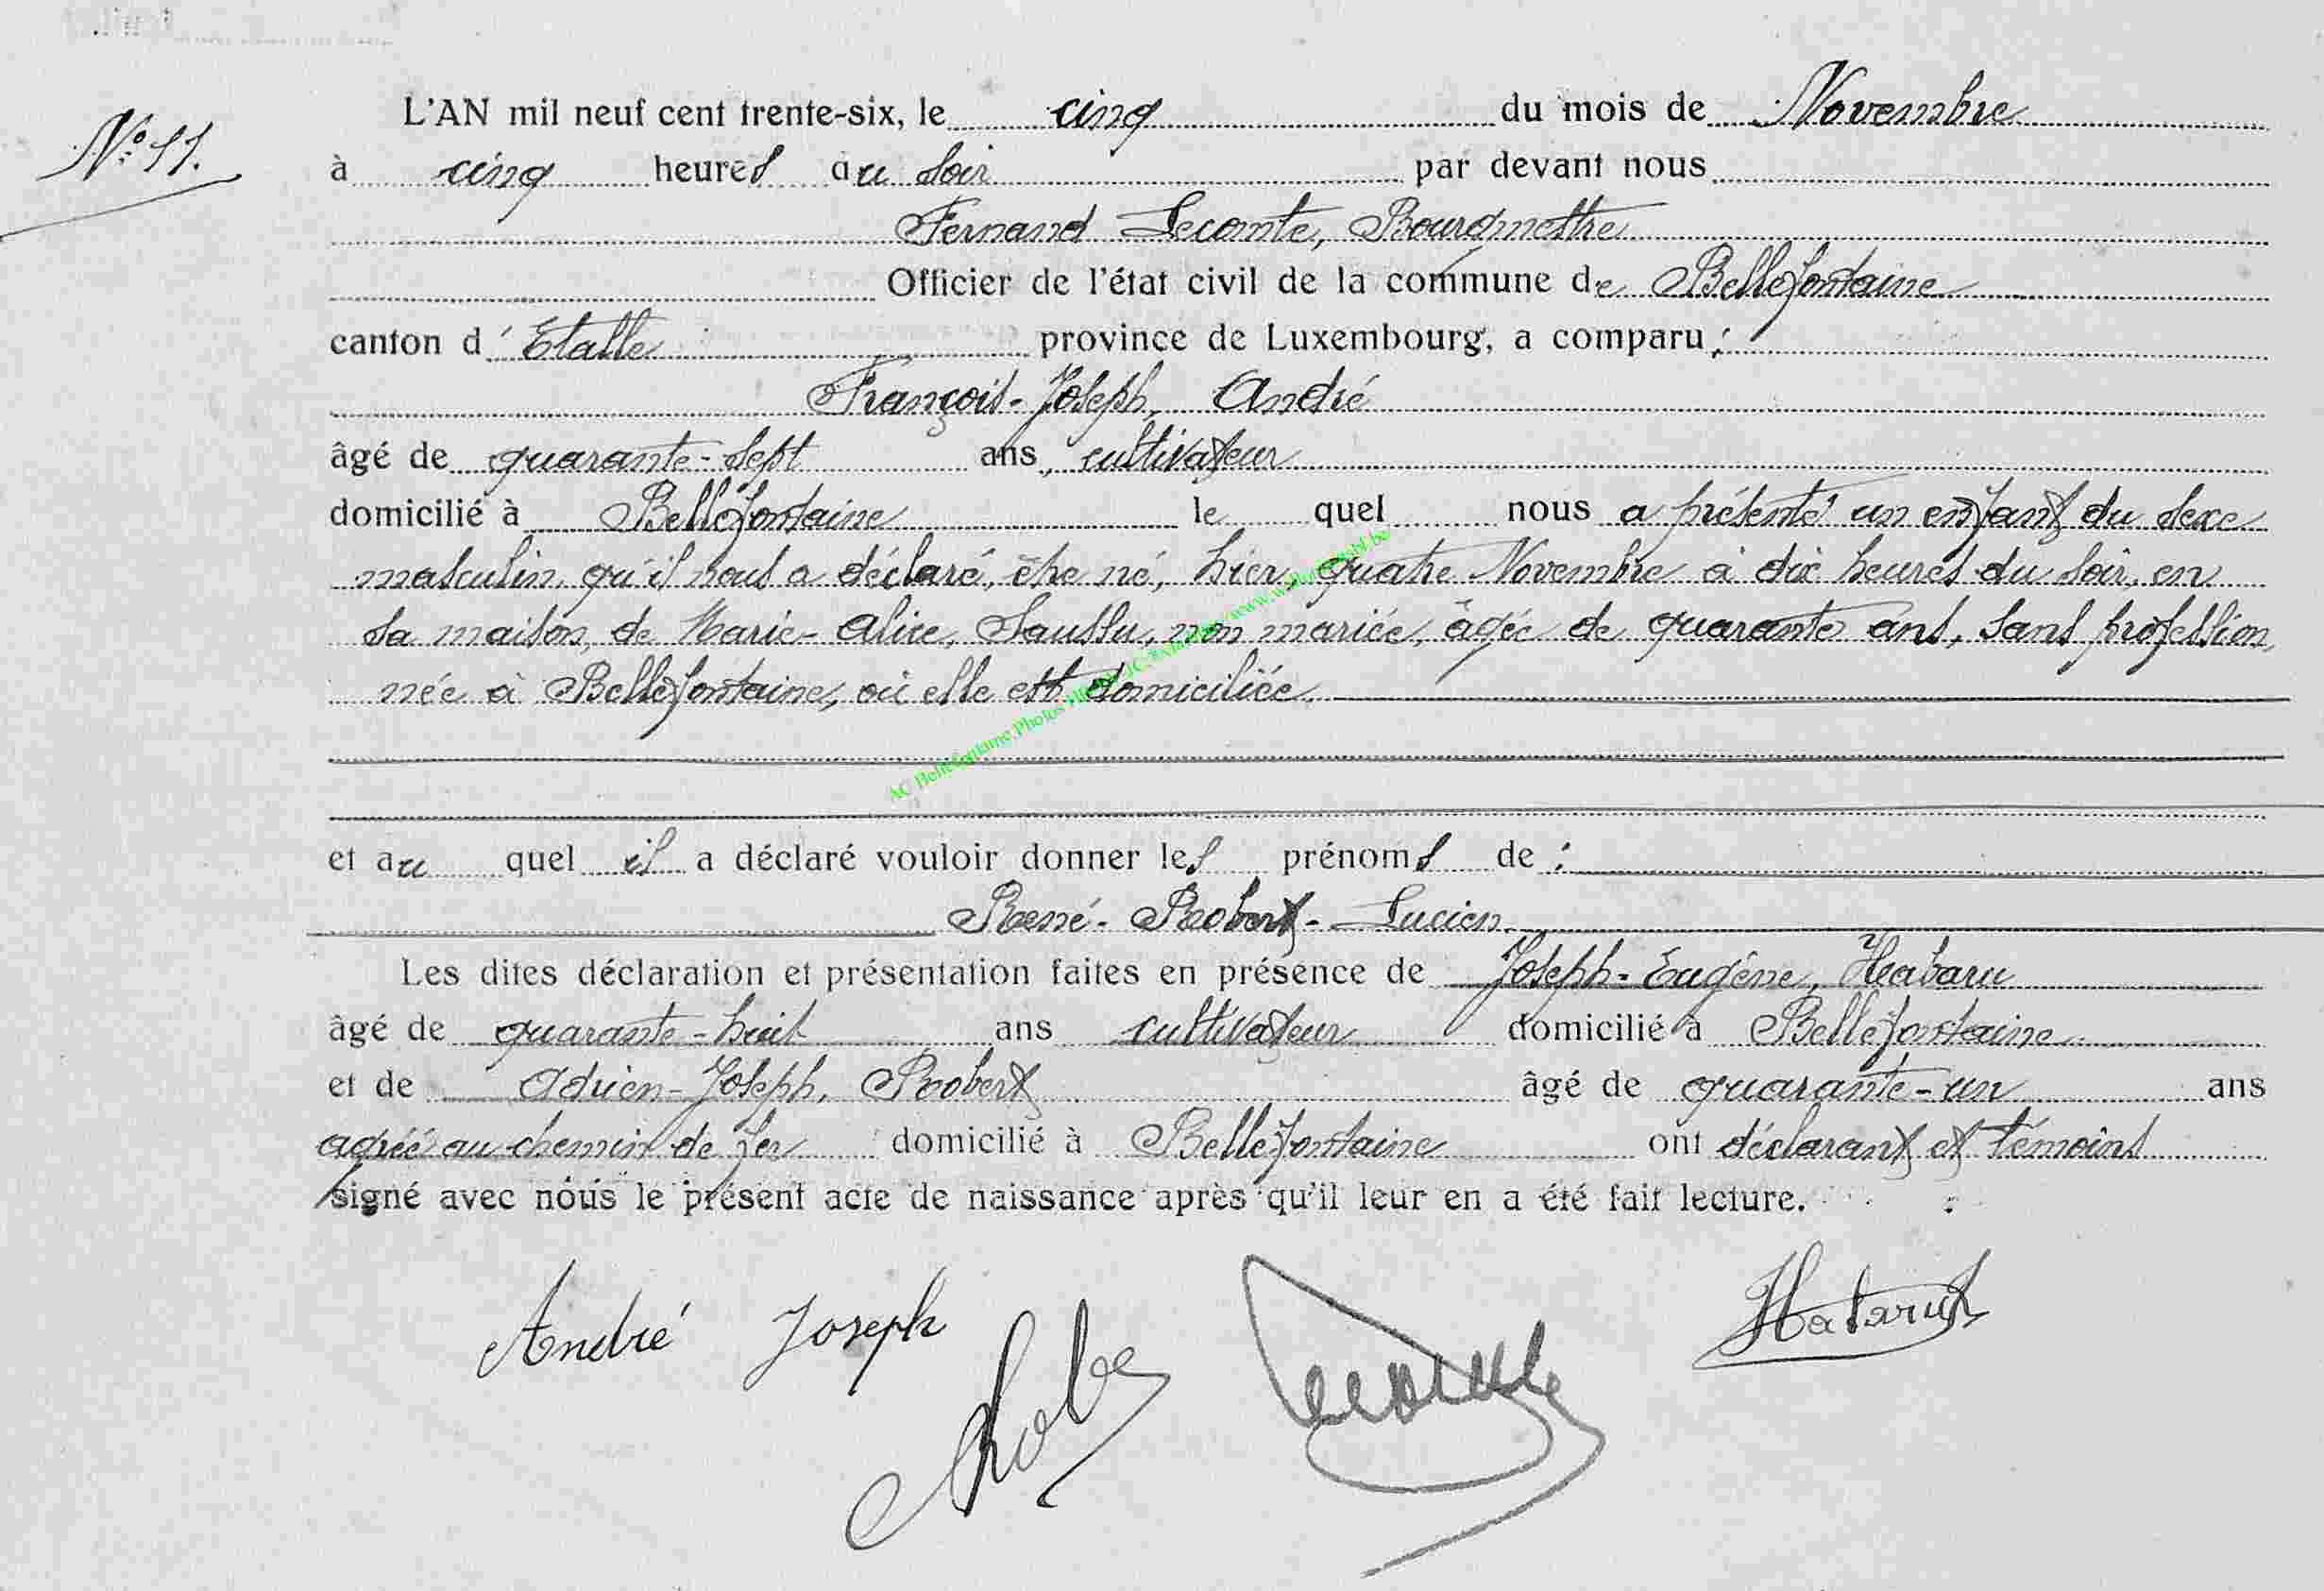 N° 11.
L'AN mil neuf cent trente-six, le cinq du mois de Novembre
à cinq heures au soir par devant nous
Fernand Lecomte, Bourgmestre
Officier de l'état civil de la commune de Bellefontaine
canton d'Etalle province de Luxembourg, a comparu :
François-Joseph, André
âgé de quarante-sept ans, cultivateur
domicilié à Bellefontaine le quel nous a présenté un enfant du sexe
masculin, qu'il nous a déclaré, être né, hier, quatre Novembre à dix heures du soir, en
sa maison, de Marie-Alice, Saussu, non mariée, âgée de quarante ans, sans profession,
née à Bellefontaine, où elle est domiciliée.
AC Bellefontaine Photos
et au quel il a déclaré vouloir donner les prénoms de :
René-Robert-Lucien.
Les dites déclaration et présentation faites en présence de Joseph-Eugène, Habaru
âgé de quarante-huit ans cultivateur domicilié à Bellefontaine
et de Adrien-Joseph, Robert âgé de quarante-un ans
agréé au chemin de fer domicilié à Bellefontaine ont déclarant et témoins
signé avec nous le présent acte de naissance après qu'il leur en a été fait lecture.
André Joseph Habaru